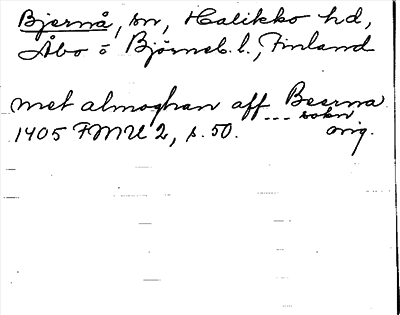 Bjernå, sn, Halikko hd,
Åbo o Björneb. l., Finland
met almoghan aff Beerna
... sokn
1405 FMU 2, s. 50. orig.